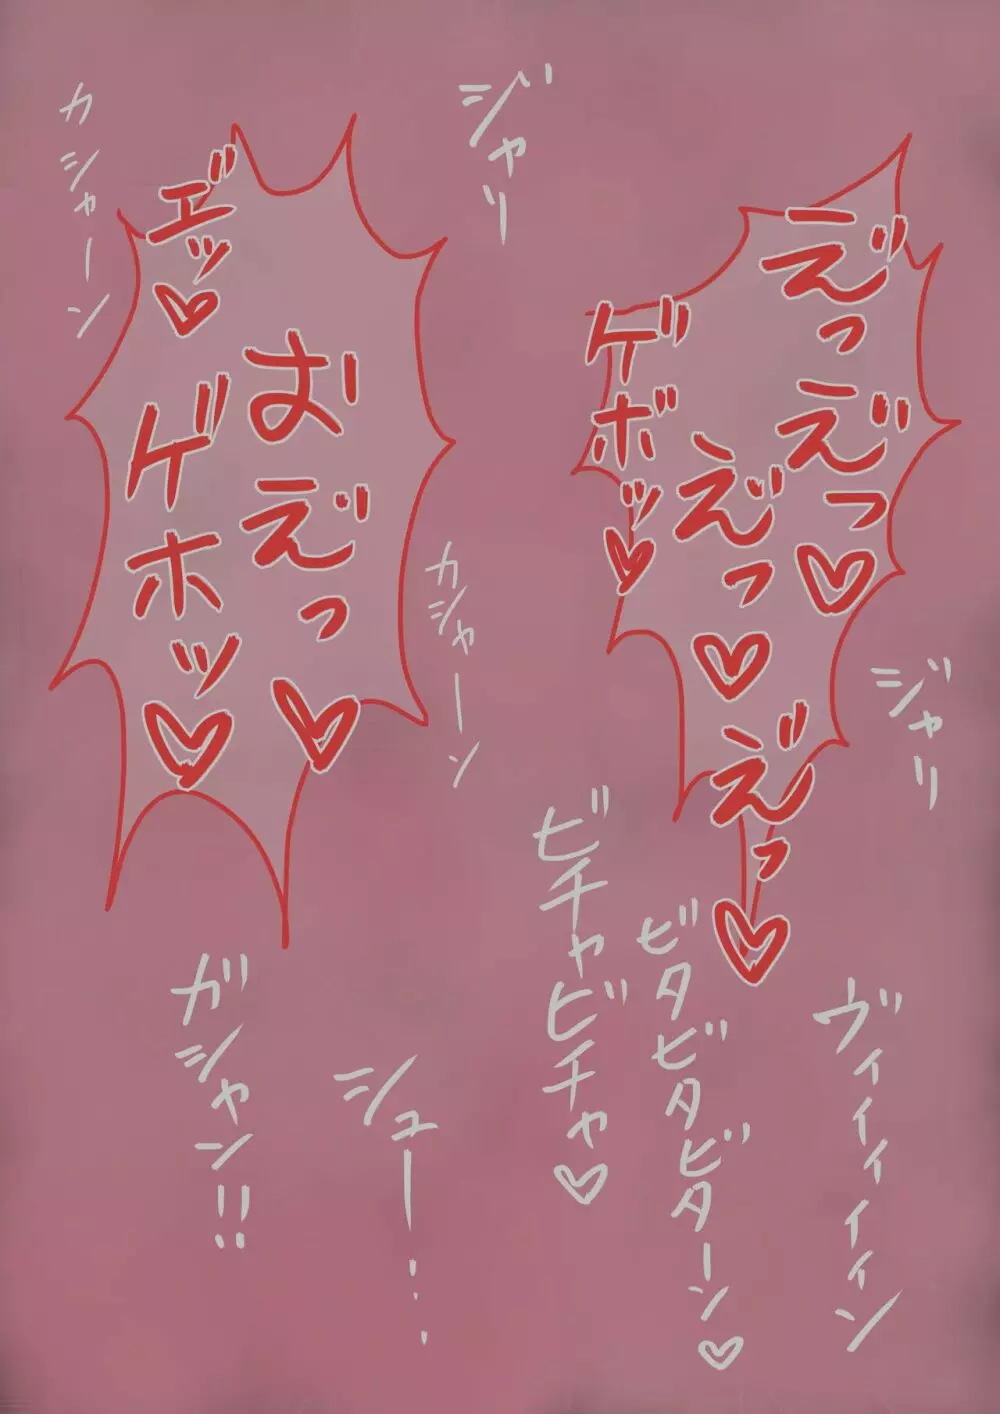 え゛っ
え゛っ♡
え゛っ♡
え゛っ♡
ゲボッ♡
ジャリ
ジャリ
ヴィイイイイン
ビタビタビターン♡
ビチャビチャ♡
エ゛ッ♡
おえ゛っ♡
ゲホッ♡
カシャーン
カシャーン
シュー・・・
ガシャン!!